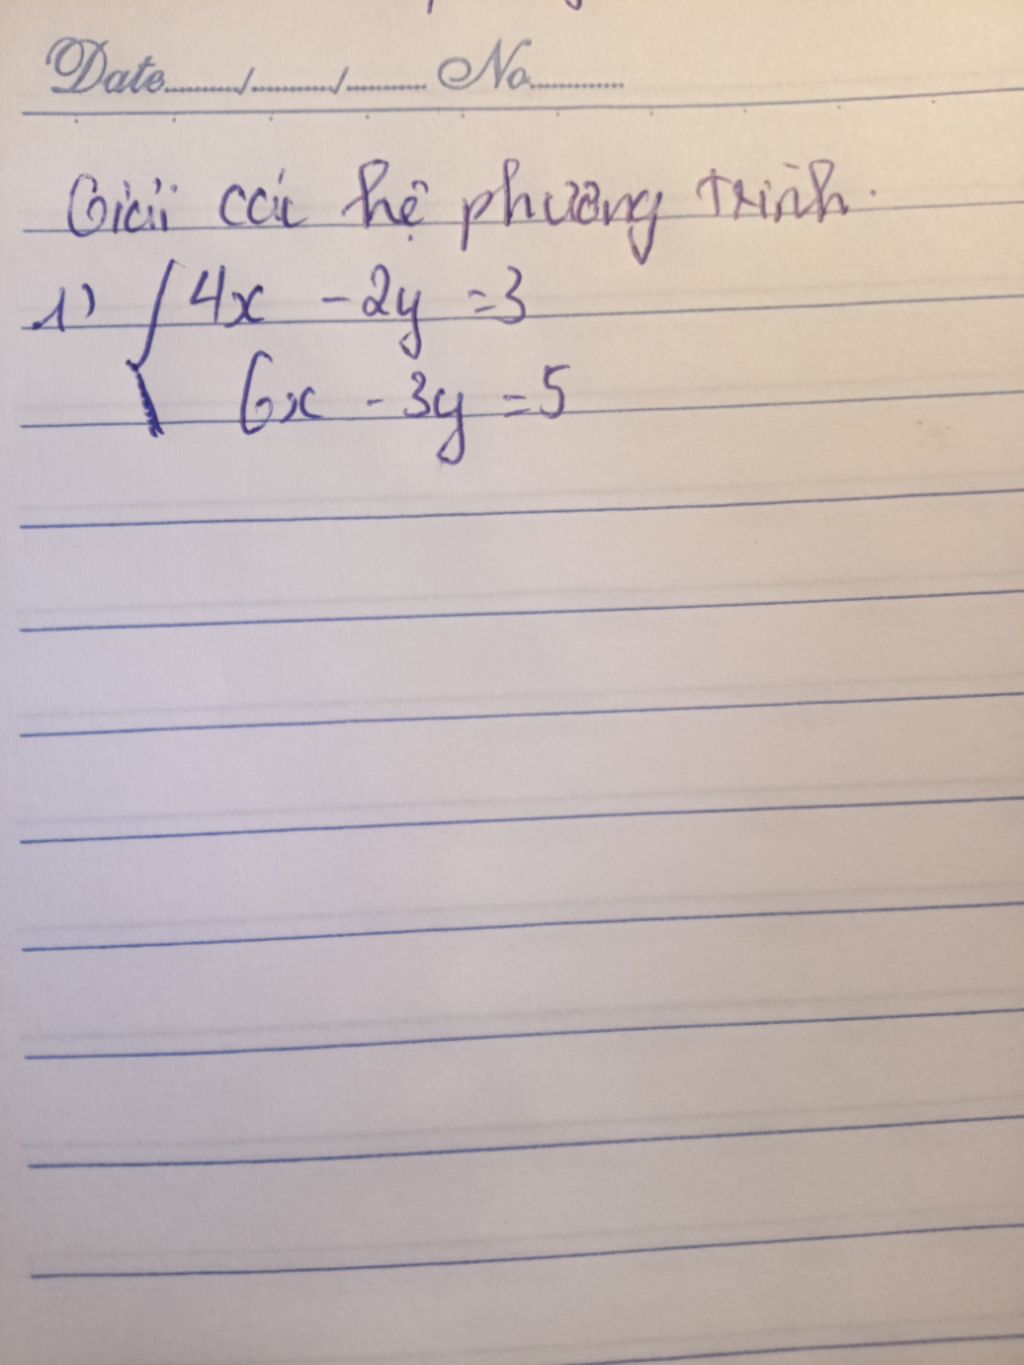 Date......../......../........ No..........
Giải các hệ phương trình.
1) { 4x - 2y = 3
6x - 3y = 5